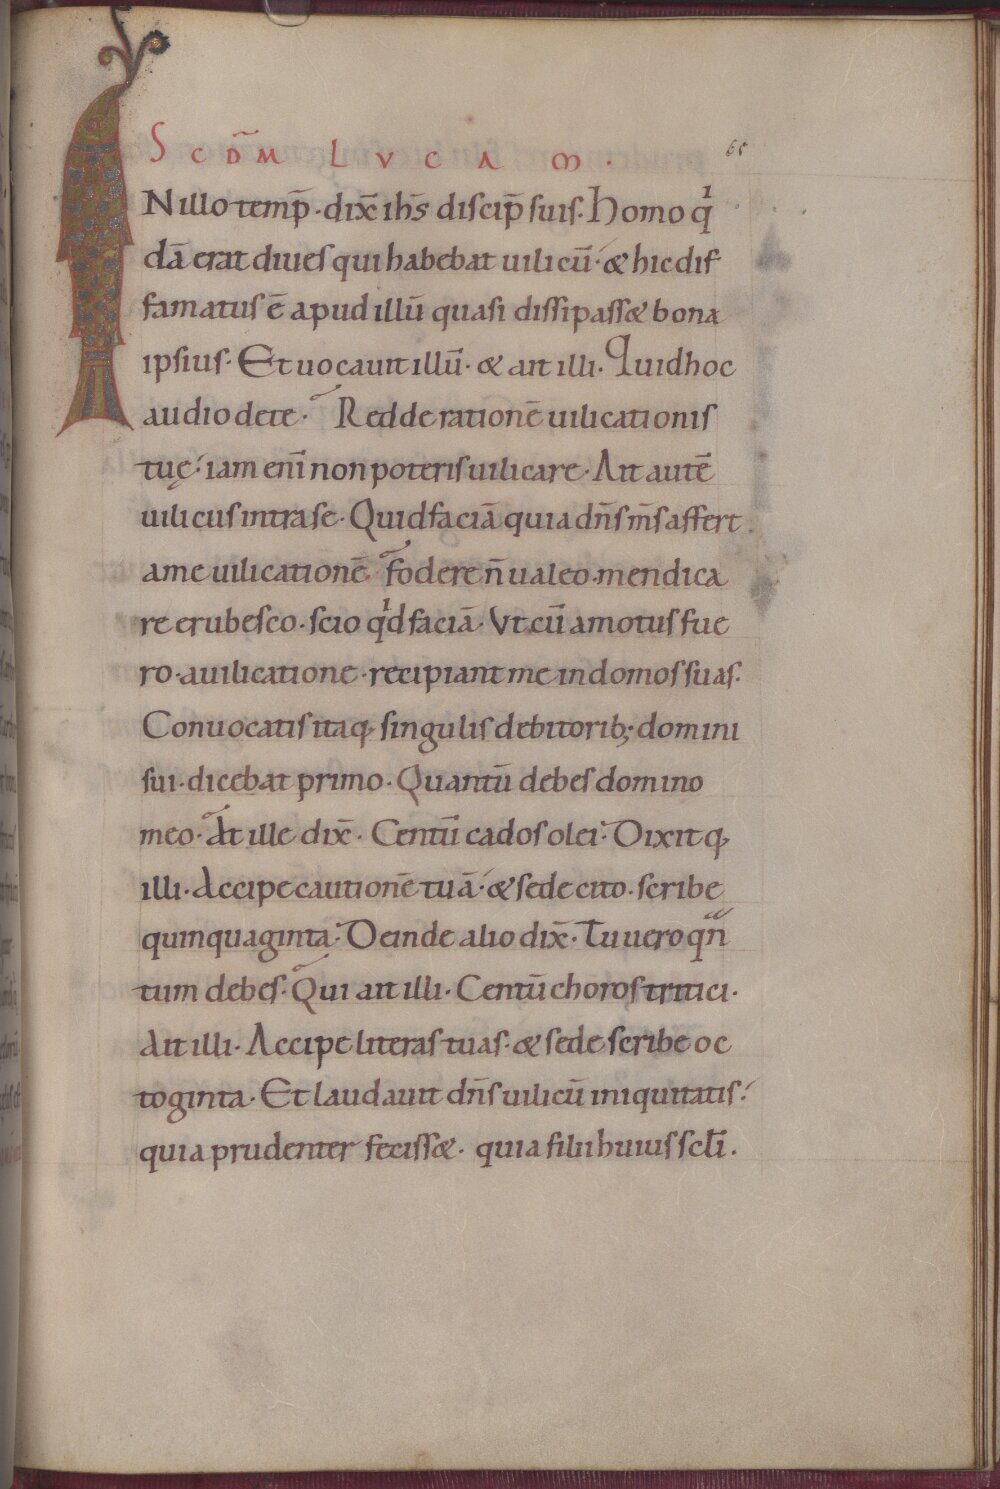 SCDM̄ LVCAM.
65
INillo temp̄. dix̄ ihs̄ discip̄ suis. Homo qi
dā erat diues qui habebat uilicū. & hic dif
famatus ē apud illū quasi dissipass& bona
ipsius. Et uocauit illū. & ait illi. Quid hoc
audio de te. Redde rationē uilicationis
tuę. iam enī non poteris uilicare. Ait autē
uilicus intra se. Quid faciā quia dn̄s m̄s affert
a me uilicationē. fodere n̄ ualeo. mendica
re erubesco. scio qid faciā. Vt cū amotus fue
ro. a uilicatione. recipiant me in domos suas.
Conuocatis itaq; singulis debitorib; domini
sui. dicebat primo. Quantū debes domino
meo. At ille dix̄. Centū cados olei. Dixitq;
illi. Accipe cautionē tuā. & sede cito. scribe
quinquaginta. Deinde alio dix̄. Tu uero qn̄
tum debes. Qui ait illi. Centū choros tritici.
Ait illi. Accipe literas tuas. & sede scribe oc
toginta. Et laudauit dn̄s uilicū iniquitatis.
quia prudenter feciss&. quia filii huius scl̄i.